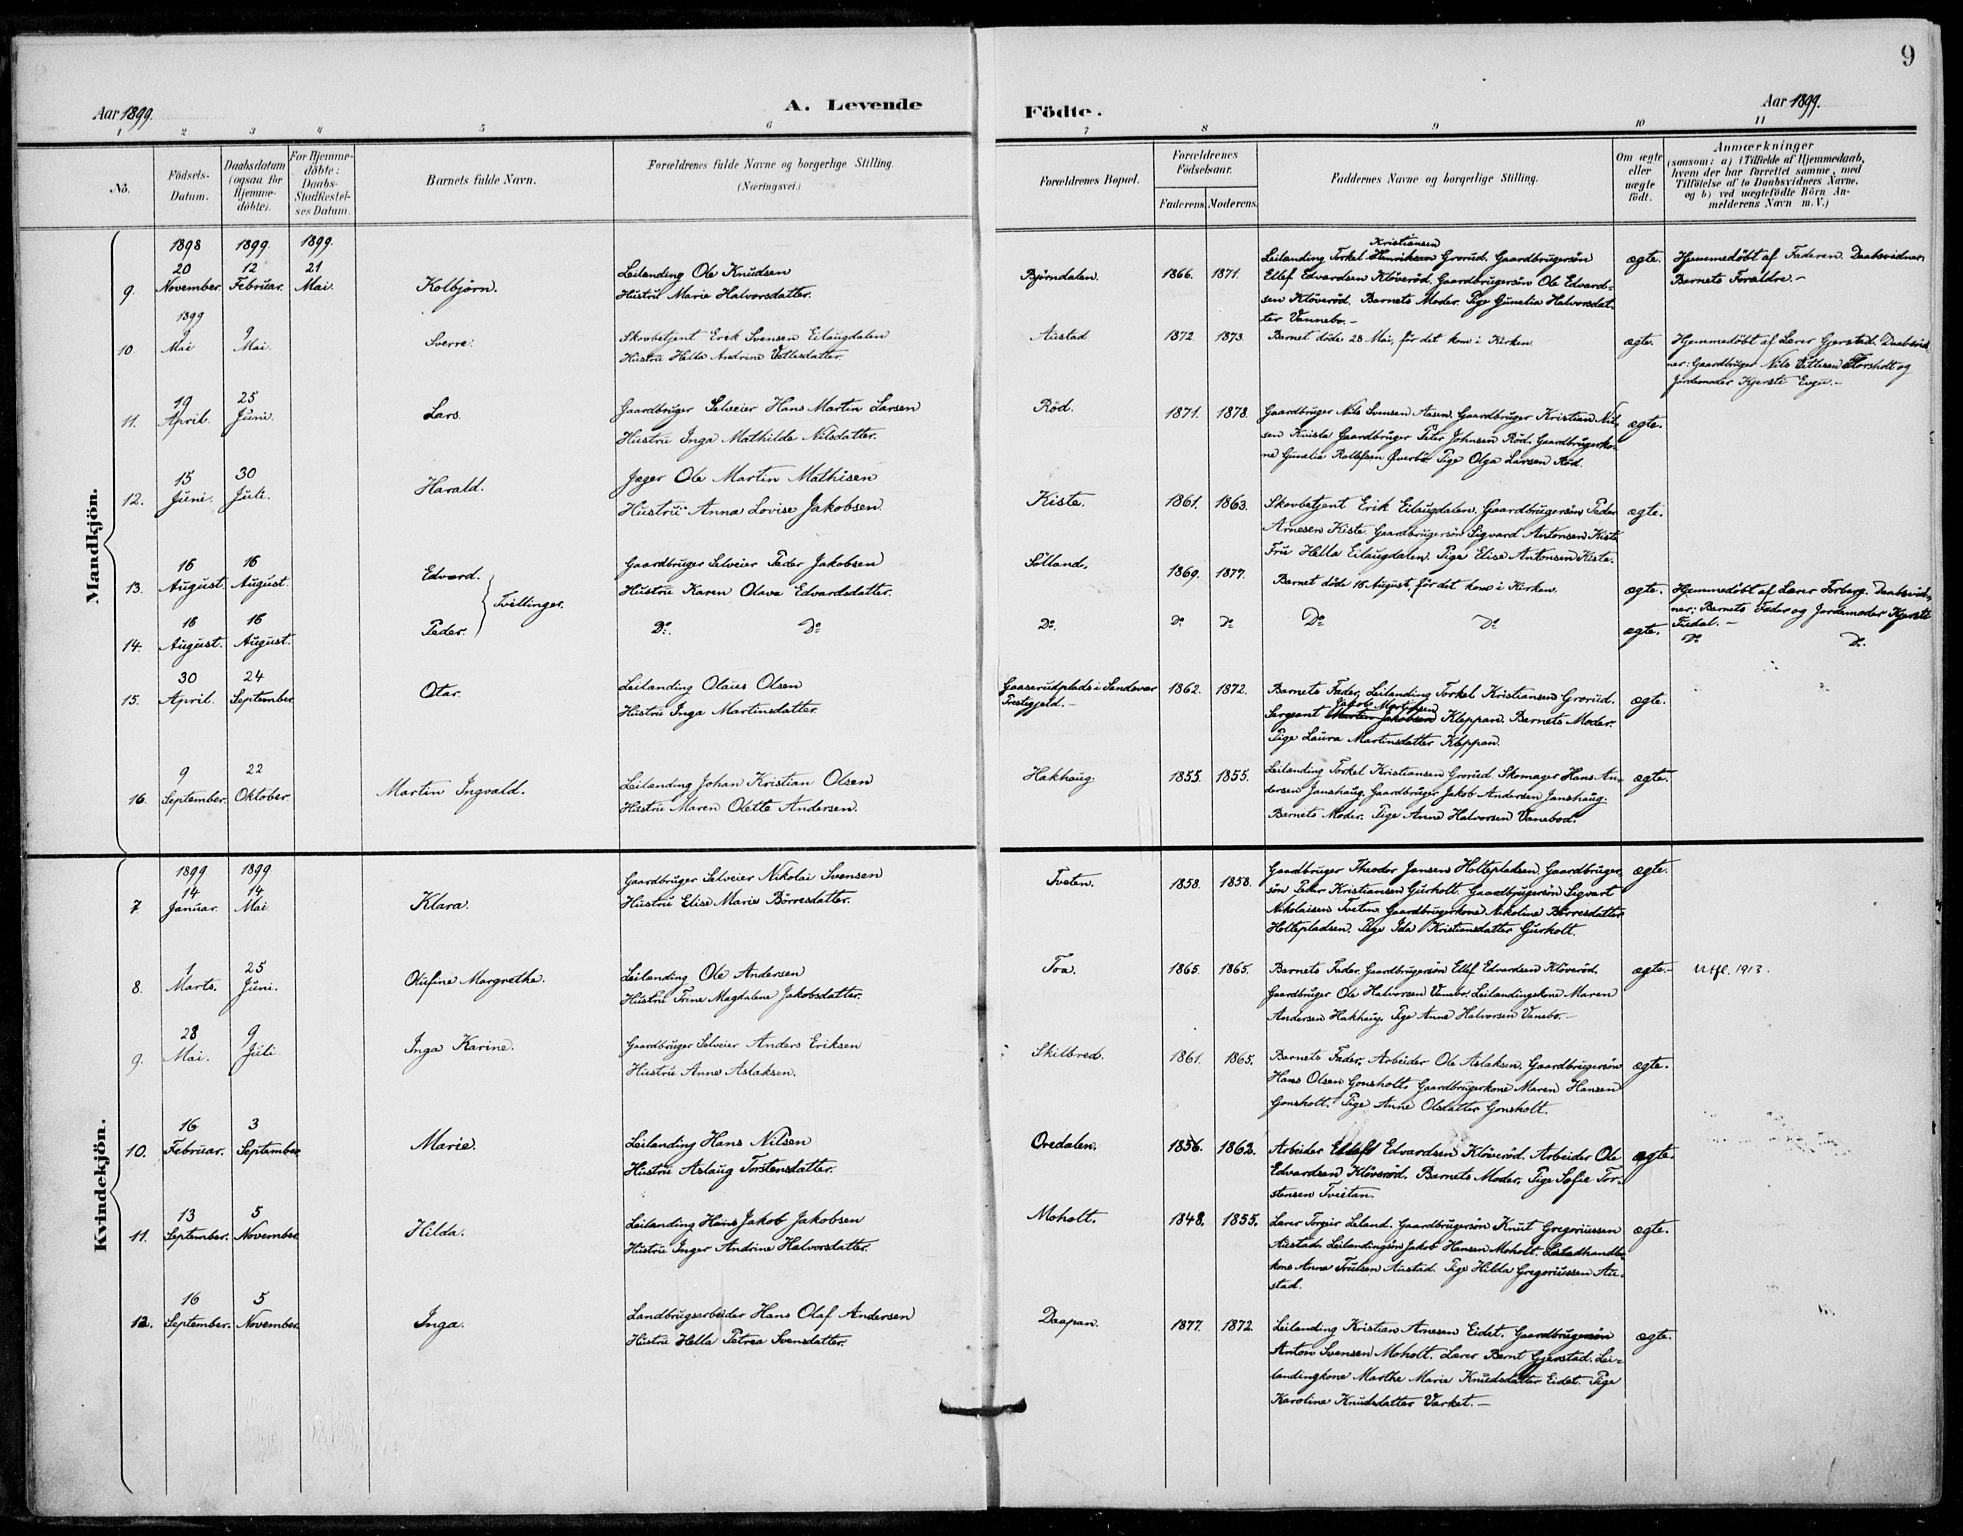 9
Aar 1899.
A. Levende
Födte.
Aar 1899.
1 2 3 4 5 6 7 8 9 10 11
No.
Födsels-
Datum.
Daabsdatum
(ogsaa for
Hjemme-
döbte).
For Hjemme-
döbte:
Daabs-
Stadfæstel-
ses Datum.
Barnets fulde Navn.
Forældrenes fulde Navne og borgerlige Stilling.
(Næringsvei.)
Forældrenes Bopæl.
Forældrenes
Födselsaar.
Faderens. Moderens.
Faddernes Navne og borgerlige Stilling.
Om ægte
eller
uægte
födt.
Anmærkninger
(saasom: a) i Tilfælde af Hjemmedaab,
hvem der har forrettet samme, med
Tilföielse af to Daabsvidners Navne,
og b) ved uægtefödte Börn An-
melderens Navn m. V.)
Mandkjön.
1898 1899. 1899.
20 12 21
9. November. Februar. Mai. Kolbjörn.
Leilending Ole Knudsen
Hustru Marie Halvorsdatter.
Björndalen. 1866. 1871.
Kristiansen
Leilending Torkel Henriksen Grorud. Gaardbrugersön
Ellef Edvardsen Klöveröd. Gaardbrugersön Ole Edvard-
sen Klöveröd. Barnets Moder. Pige Gunelia Halvorsdat-
ter Vannebo.-
ægte.
Hjemmedöbt af Faderen. Daabsvidner:
Barnets Forældre.-
1899
9 9
10 Mai Mai. Sverre.
Skovbetjent Erik Svensen Eilaugdalen
Hustru Hella Andrine Vetlesdatter.
Austad 1872. 1873.
Barnet döde 28 Mai, för det kom i Kirken.
ægte.
Hjemmedöbt af Lærer Gjerstad. Daabsvid-
ner: Gaardbruger Nils Vetlesen og
Jordemoder Kjersti
19 25
11. April. Juni. Lars.
Gaardbruger Selveier Hans Martin Larsen
Hustru Inga Mathilde Nilsdatter.
Röd. 1871. 1878.
Gaardbruger Nils Svensen Aasen. Gaardbruger Kristian Nil-
sen Kvisla Gaardbruger Peter Johnsen Röd. Gaardbrugerko-
ne Gunelia Rollefsen Överbö. Pige Olga Larsen Röd.
ægte.
15 30
12. Juni. Juli. Harald.
Jæger Ole Martin Mathisen
Hustru Anna Lovise Jakobsen.
Kiste. 1861. 1863.
Skovbetjent Erik Eilaugdalen. Gaardbrugersön Peder
Arnesen Kiste. Gaardbrugersön Sigvard Antonsen Kiste
Fru Hella Eilaugdalen. Pige Elise Antonsen Kiste.
ægte.
16 16
13. August. August. Edvard.
Tvillinger.
Gaardbruger Selveier Peder Jakobsen
Hustru Karen Olava Edvardsdatter.
Sölland. 1869. 1877.
Barnet döde 16 August, för det kom i Kirken.
ægte.
Hjemmedöbt af Lærer Forberg. Daabsvid-
ner: Barnets Fader og Jordemoder Kjersti
16 16
14. August. August. Peder.
Do. Do
Do. Do Do Do Do ægte. Do Do.
30 24
15. April. September. Otar.
Leilending Olaus Olsen
Hustru Inga Martinsdatter.
Gaaserudplads i Sandsvær
Prestegjeld.-
1862. 1872.
Barnets Fader. Leilending Torkel Kristiansen Grorud.
Jakob Martinsen
Sergeant Martin Jakobsen Kleppan. Barnets Moder.
Pige Laura Martinsdatter Kleppan.
ægte.
9 22
16. September. Oktober. Martin Ingvald.
Leilending Johan Kristian Olsen
Hustru Maren Olette Andersen.
Hakhaug. 1855. 1855.
Leilending Torkel Kristiansen Grorud. Skomager Hans An-
dersen Janshaug. Gaardbruger Jakob Andersen Janshaug.
Barnets Moder. Pige Anne Halvorsen Vanebod.
ægte.
Kvindekjön.
1899 1899
14 14
7. Januar. Mai. Klara.
Gaardbruger Selveier Nikolai Svensen
Hustru Elise Marie Börresdatter.
Tveten. 1858. 1858.
Gaardbruger Theodor Jansen Holtepladsen. Gaardbruger-
sön Peter Kristiansen Gurholt. Gaardbrugersön Sigvart
Nikolaisen Tveten. Gaardbrugerkone Nikoline Börresdatter
Holtepladsen. Pige Ida Kristiansdatter Gurholt.
ægte.
1 25
8. Marts. Juni. Olufine Margrethe.
Leilending Ole Andersen
Hustru Trine Magdalene Jakobsdatter.
Toa. 1865. 1865.
Barnets Fader. Gaardbrugersön Ellef Edvardsen Klöveröd.
Gaardbruger Ole Halvorsen Vanebo. Leilendingskone Maren
Andersen Hakhaug. Pige Anne Halvorsen Vanebo.-
ægte.-
Utfl. 1913.
28 9
9. Mai. Juli Inga Karine.
Gaardbruger Selveier Anders Eriksen
Hustru Anne Aslaksen.
Skilbred. 1861. 1865.
Barnets Fader. Arbeider Ole Aslaksen. Gaardbrugersön
Hans Olsen Gonsholt. Gaardbrugerkone Maren Hansen
Gonsholt. Pige Anne Olsdatter Gonsholt.
ægte.
16 3
10. Februar. September. Marie.
Leilending Hans Nilsen
Hustru Aslaug Torstensdatter.
Ovedalen. 1856. 1862.
Arbeider Ellef Edvardsen Klöveröd. Arbeider Ole
Edvardsen Klöveröd. Barnets Moder. Pige Sofie Tor-
stensen Tvietan.
ægte.
13 5
11. September. November. Hilda.
Leilending Hans Jakob Jakobsen
Hustru Inger Andrine Halvorsdatter.
Moholt. 1848. 1855.
Lærer Torgeir Leland. Gaardbrugersön Knut Gregoriussen
Austad. Leilendingsön Jakob Hansen Moholt.
kone Anna Truelsen Austad. Pige Hilda Gregoriussen Au-
stad.
ægte.
16 5
12. September. November. Inga.
Landbrugsarbeider Hans Olaf Andersen
Hustru Hella Petrea Svensdatter.
Daapan. 1877. 1872.
Leilending Kristian Arnesen Eidet. Gaardbrugersön
Anton Svensen Moholt. Lærer Bernt Gjerstad. Lei-
lendingkone Marthe Marie Knudsdatter Eidet. Pige
Karoline Knudsdatter Værket.-
ægte.